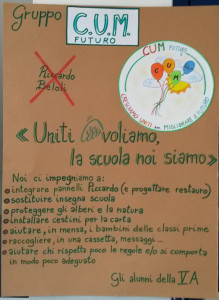 Gruppo C.U.M.
FUTURO
Piccardo
Beloli
CUM FUTURO
C U M
CRESCIAMO UNITI ... MIGLIORARE IL FUTURO
«Uniti voliamo,
la scuola noi siamo»
Noi ci impegniamo a:
• integrare pannelli Piccardo (e progettare restauro)
• sostituire insegna scuola
• proteggere gli alberi e la natura
• installare cestini per la carta
• aiutare, in mensa, i bambini delle classi prime
• raccogliere, in una cassetta, messaggi ...
• aiutare chi rispetta poco le regole e/o si comporta
in modo poco adeguato
Gli alunni della V A